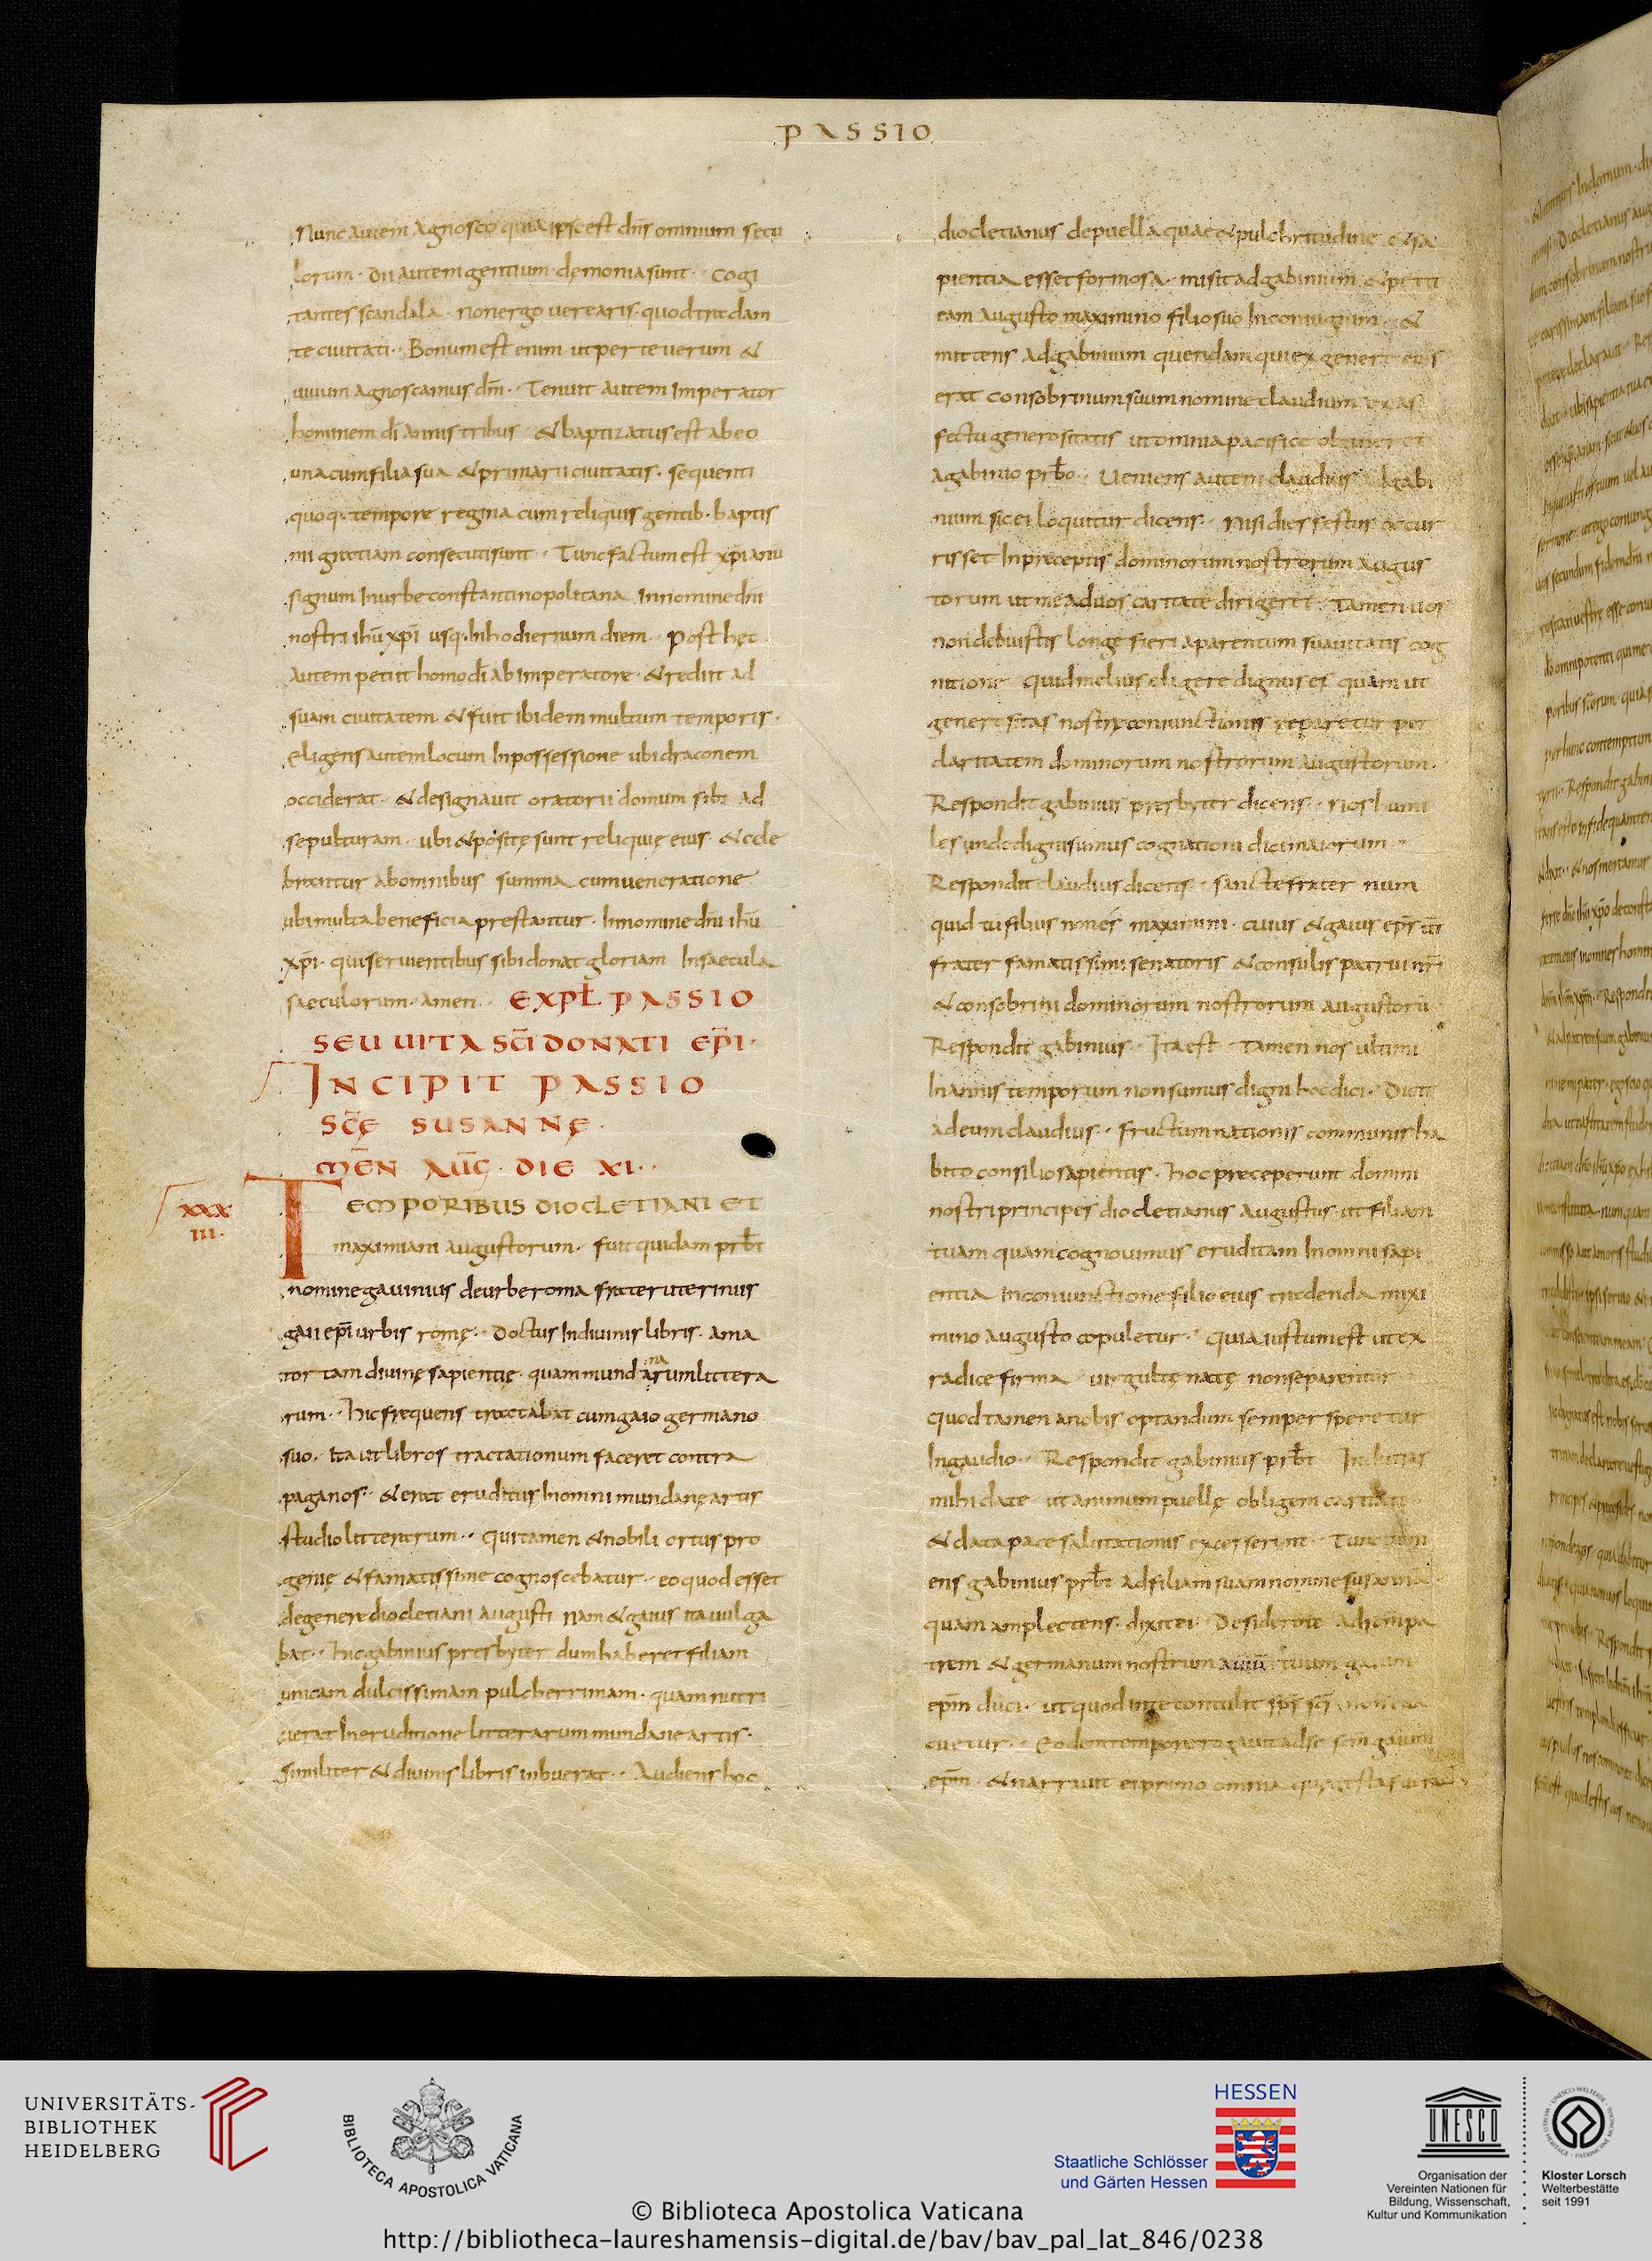 PASSIO
Nunc autem agnosco quia ipse est dn̄s omnium secu
lorum · Dii autem gentium demonia sunt · Cogi
tantes scandala · non ergo verearis · quod tra dam
te civitati · Bonum est enim ut per te verum &
vivum agnoscamus dm̄ · Tenuit autem Imperator
hominem dī annis tribus · & baptizatus est ab eo
una cum filia sua & primarii civitatis · sequenti
quoq· tempore regina cum reliquis gentib· baptis
mi gratiam consecuti sunt · Tunc factum est xp̄ianū
signum In urbe constantinopolitana In nomine dn̄i
nostri ihū xpī usq· In hodiernum diem · Post hęc
autem petiit homo dī ab imperatore · & rediit ad
suam civitatem & fuit ibidem multum temporis ·
Eligens autem locum In possessione ubi draconem
occiderat · & designavit oratorii domum sibi ad
sepulturam · ubi & positę sunt reliquię eius · & cele
brantur ab omnibus summa cum veneratione
ubi multa beneficia prestantur · In nomine dn̄i ihū
xp̄i · qui servientibus sibi donat gloriam In saecula
saeculorum · amen · EXPŁ PASSIO
SEU UITA SC̄I DONATI EP̄I ·
INCIPIT PASSIO
SC̄Ę SUSANNĘ ·
MEN̄ AUḠ · DIE XI ·
XXX
III ·
TEMPORIBUS DIOCLETIANI ET
maximiani augustorum · fuit quidam prb̄t
nomine gavinius de urbe roma frater uterinus
gaii epī urbis romę · Doctus In divinis libris · ama
tor tam divinę sapientię · quam mundanarum littera
rum · Hic frequens tractabat cum gaio germano
suo · Ita ut libros tractationum faceret contra
paganos · & erat eruditus In omni mundanę artis
studio litterarum · Qui tamen & nobili ortus pro
genię & famatissime cognoscebatur · eo quod esset
de genere diocletiani augusti nam & gaius ita vulga
bat · Hic gabinius presbyter dum haberet filiam
unicam dulcissimam pulcherrimam · quam nutri
verat In eruditione litterarum mundane artis ·
Similiter & divinis libris inbuerat · Audiens hoc
diocletianus de puella quae & pulchritudine & sa
pientia esset formosa · misit ad gabinium & petiit
eam augusto maximino filio suo In coniugium · &
mittens ad gabinium quendam qui ex genere eius
erat consobrinum suum nomine claudium · ex af
fectu generositatis ut omnia pacifice obtineret
a gabinio prb̄o · Veniens autem claudius ad gabi
nium sic ei loquitur dicens · Nisi dies festus occur
risset In preceptis dominorum nostrorum augus
torum ut me ad vos caritate dirigeret · Tamen vos
non debuistis longe fieri a parentum suavitatis cog
nitione Quid melius eligere dignus es quam ut
generositas nostrę coniunctionis reparetur per
claritatem dominorum nostrorum augustorum ·
Respondit gabinius presbyter dicens · Nos humi
les unde digni sumus cognationi dici maiorum ·
Respondit claudius dicens · sancte frater num
quid tu filius non es maximini · cuius & gaius ep̄s
frater famatissimi senatoris & consulis patrui nr̄i
& consobrini dominorum nostrorum augustorū
Respondit gabinius · Ita est · tamen nos ultimi
In annis temporum non sumus digni hoc dici · Dicit
ad eum claudius · Fructum nationis communis ha
bito consilio sapientis · Hoc preceperunt domini
nostri principes diocletianus augustus · ut filiam
tuam quam cognovimus eruditam In omni sapi
entia In coniunctione filio eius tradenda maxi
mino augusto copuletur · Quia iustum est ut ex
radice firma virgultę natę non separentur
quod tamen a nobis optandum semper speretur
In gaudio · Respondit gabinius prb̄t Indutias
mihi date ut animum puellę obligem caritate
& data pace salutationis excesserunt · Tunc
ens gabinius prb̄t ad filiam suam nomine susanna
quam amplectens · dixit ei · Desiderate
trem & germanum nostrum tuum gaium
epm̄ duci · ut quod In te contulit sps̄ scs̄
Eodem tempore rogavit ad se scm̄ gaium
epm̄ · & narravit ei primo omnia quę gesta
UNIVERSITÄTS-
BIBLIOTHEK
HEIDELBERG
BIBLIOTECA APOSTOLICA VATICANA
HESSEN
Staatliche Schlösser
und Gärten Hessen
UNESCO
Organisation der
Vereinten Nationen für
Bildung, Wissenschaft,
Kultur und Kommunikation
Kloster Lorsch
Welterbestätte
seit 1991
© Biblioteca Apostolica Vaticana
http://bibliotheca-laureshamensis-digital.de/bav/bav_pal_lat_846/0238